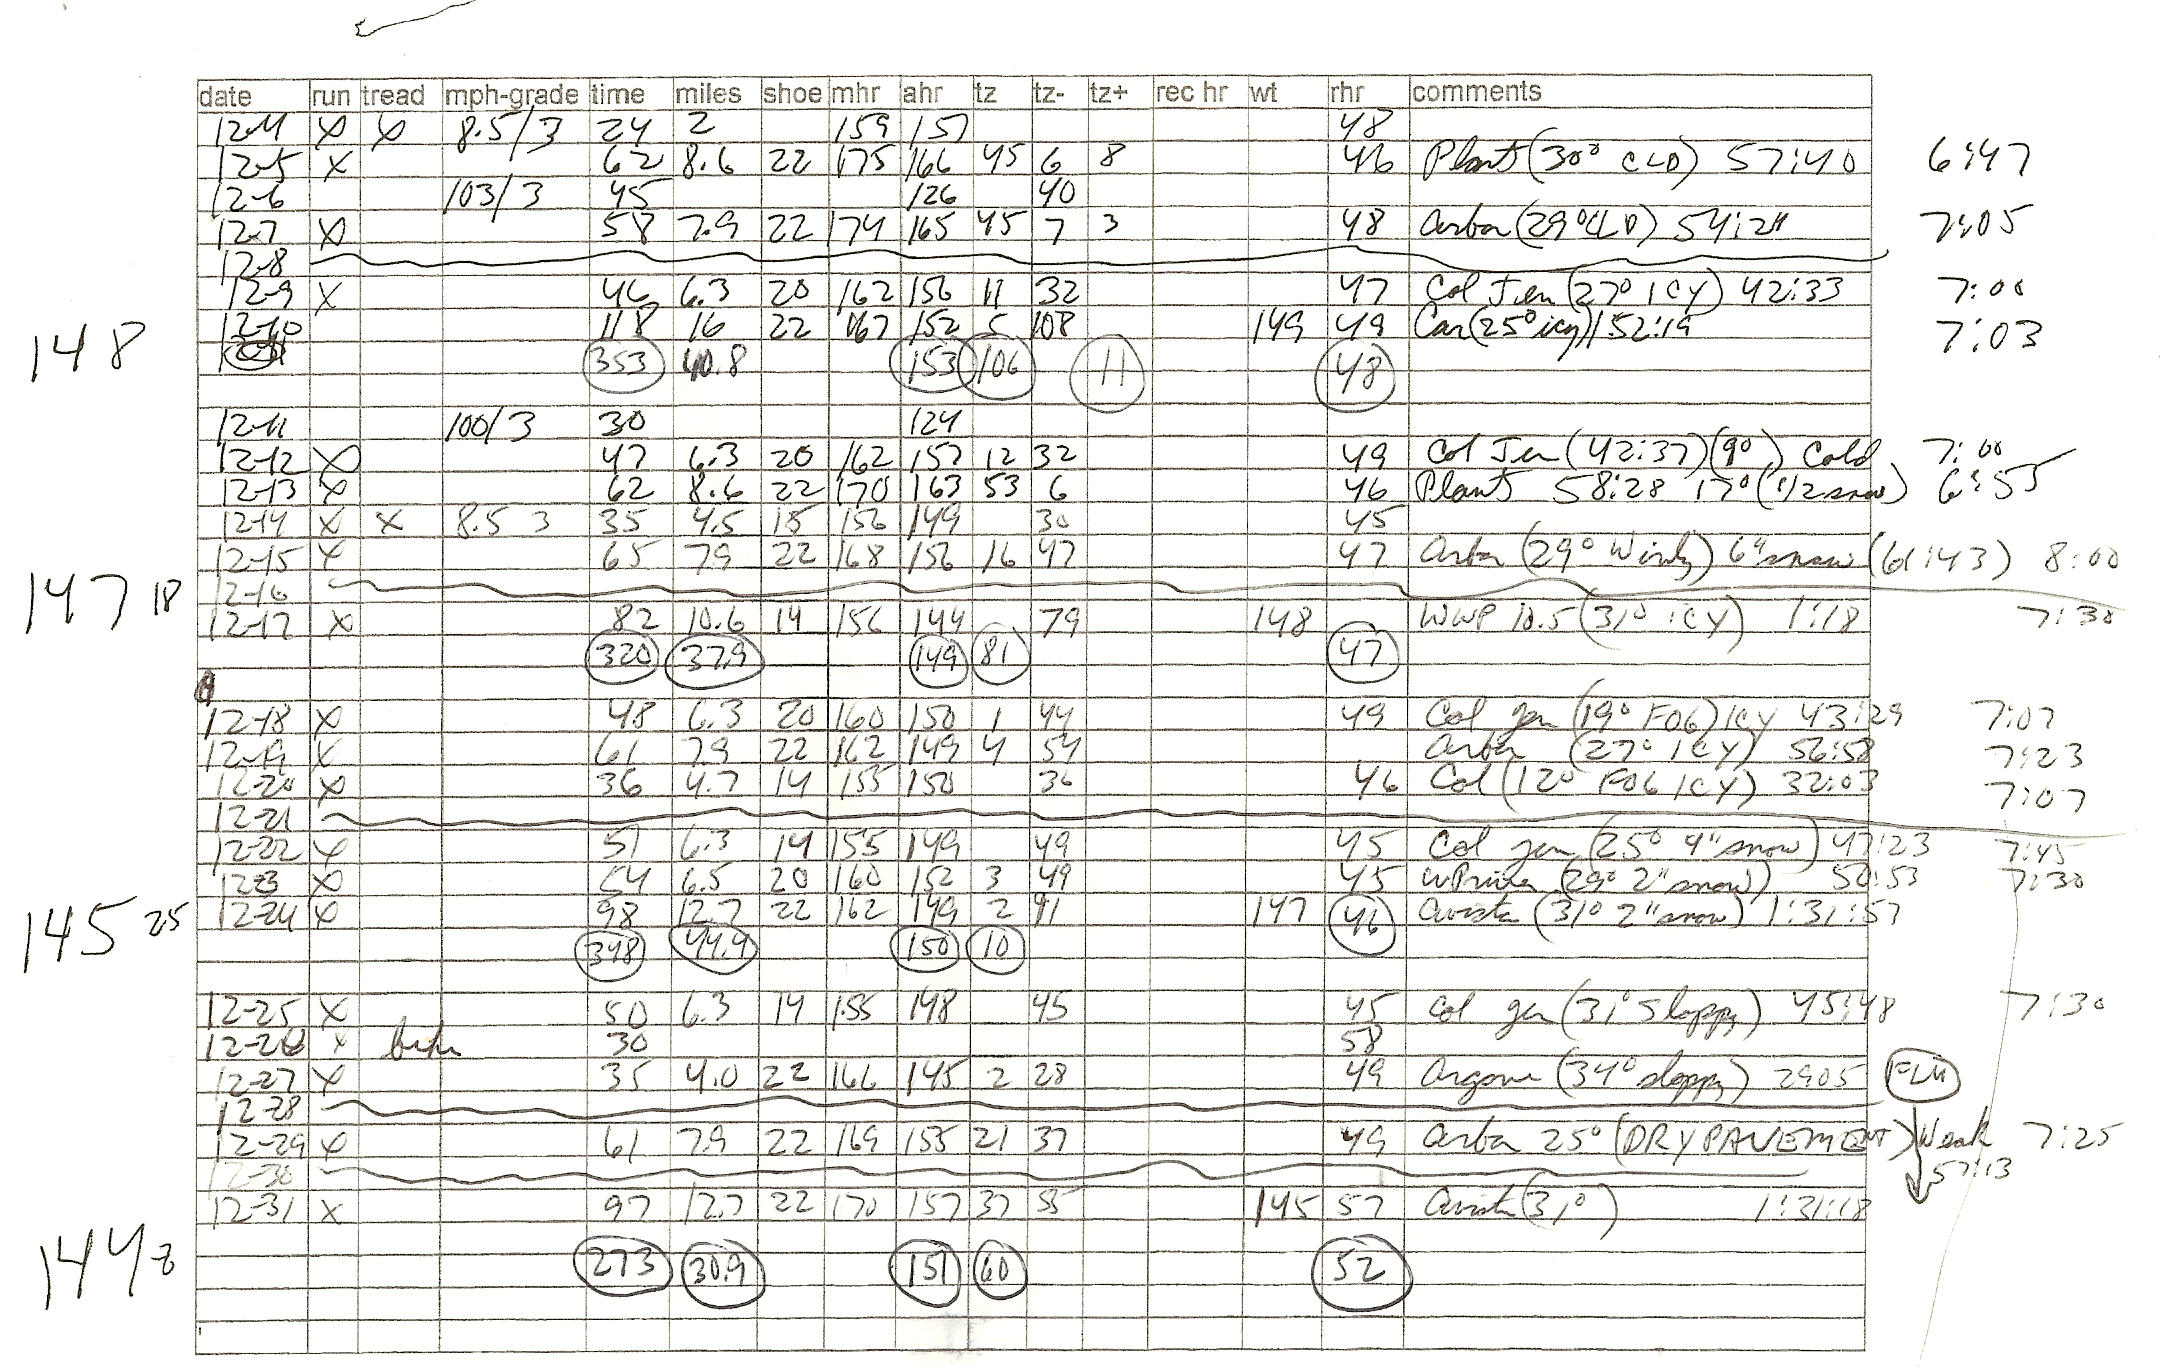 date run tread mph-grade time miles shoe mhr ahr tz tz- tz+ rec hr wt rhr comments
12-4 X X 8.5/3 24 2 159 157 48
12-5 X 62 8.6 22 175 166 45 6 8 46 Plant (30° CLD) 57:40 6:47
12-6 103/3 45 126 40
12-7 X 58 7.9 22 174 165 45 7 3 48 Arbor (29° CLD) 54:24 7:05
12-8
12-9 X 46 6.3 20 162 156 11 32 47 Col Jen (27° ICY) 42:33 7:00
12-10 118 16 22 167 152 5 108 149 49 Can (25° icy) 1:52:19 7:03
148 353 40.8 153 106 11 48
12-11 100/3 30 124
12-12 X 47 6.3 20 162 157 12 32 49 Col Jen (42:37) (9°) Cold 7:00
12-13 X 62 8.6 22 170 163 53 6 46 Plant 58:28 17° (1/2 snow) 6:55
12-14 X X 8.5 3 35 4.5 18 156 149 30 45
12-15 X 65 7.9 22 168 156 16 47 47 Arbor (29° Windy) 6" snow (61:43) 8:00
147 18 12-16
12-17 X 82 10.6 14 156 144 79 148 WWP 10.5 (31° ICY) 1:18 7:30
320 37.9 149 81 47
12-18 X 48 6.3 20 160 150 1 44 49 Col Jen (19° FOG) ICY 43:29 7:07
12-19 X 61 7.9 22 162 149 4 54 Arbor (27° ICY) 56:58 7:23
12-20 X 36 4.7 14 155 150 36 46 Col (12° FOG ICY) 32:03 7:07
12-21
12-22 X 51 6.3 14 155 149 49 45 Col Jen (25° 4" snow) 47:23 7:45
12-23 X 54 6.5 20 160 152 3 49 45 (29° 2" snow) 50:53 7:30
145 25 12-24 X 98 12.7 22 162 149 2 91 147 46 Avista (31° 2" snow) 1:31:57
348 44.9 150 10
12-25 X 50 6.3 14 155 148 45 45 Col Jen (31° Sloppy) 45:48 7:30
12-26 X bike 30 58
12-27 X 35 4.0 22 166 145 2 28 49 Argonne (34° sloppy) 2905 FLU
12-28
12-29 X 61 7.9 22 169 155 21 37 49 Arbor 25° (DRY PAVEMENT) Weak 7:25
12-30 57:13
12-31 X 97 12.7 22 170 157 37 55 145 57 Avista (31°) 1:31:18
144 273 30.9 151 60 52